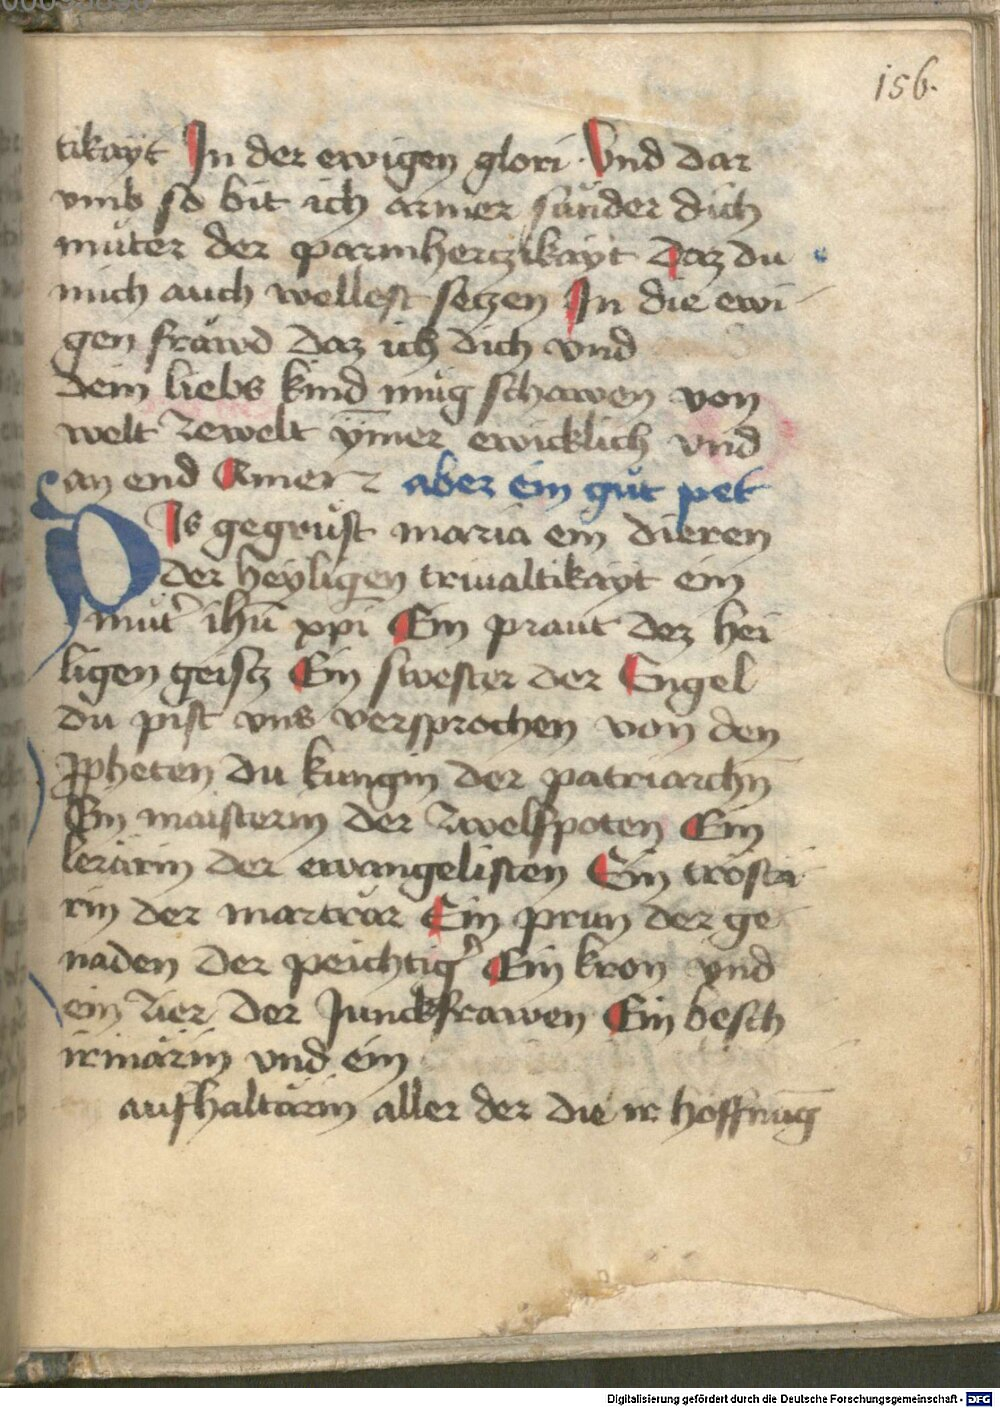 156.
tikayt In der ewigen glori. Vnd dar
vmb so bit ich armer sünder dich
müter der parmhertzikayt Daz du
mich auch wellest setzen In die ewi
gen fräwd Daz ich dich vnd
dein liebs kind müg schawen von
welt zewelt ymer ewicklich vnd
an end Amen aber ein güt pet
Bis gegrüst maria ein dieren
der heyligen triualtikayt ein
mut' ihū xpi Ein praut dez hei
ligen geistz Ein swester der Engel
du pist vns versprochen von den
ppheten du kungin der patriarchn̄
Ein maisterin der zwelfpoten Ein
lerärin der ewangelisten Ein trostä
rin der marträr Ein prun der ge
naden der peichtig' Ein kron vnd
ein zier der Junckfrawen Ein besch
irmärin vnd ein
aufhaltärin aller der die ir hoffnūg
Digitalisierung gefördert durch die Deutsche Forschungsgemeinschaft - DFG